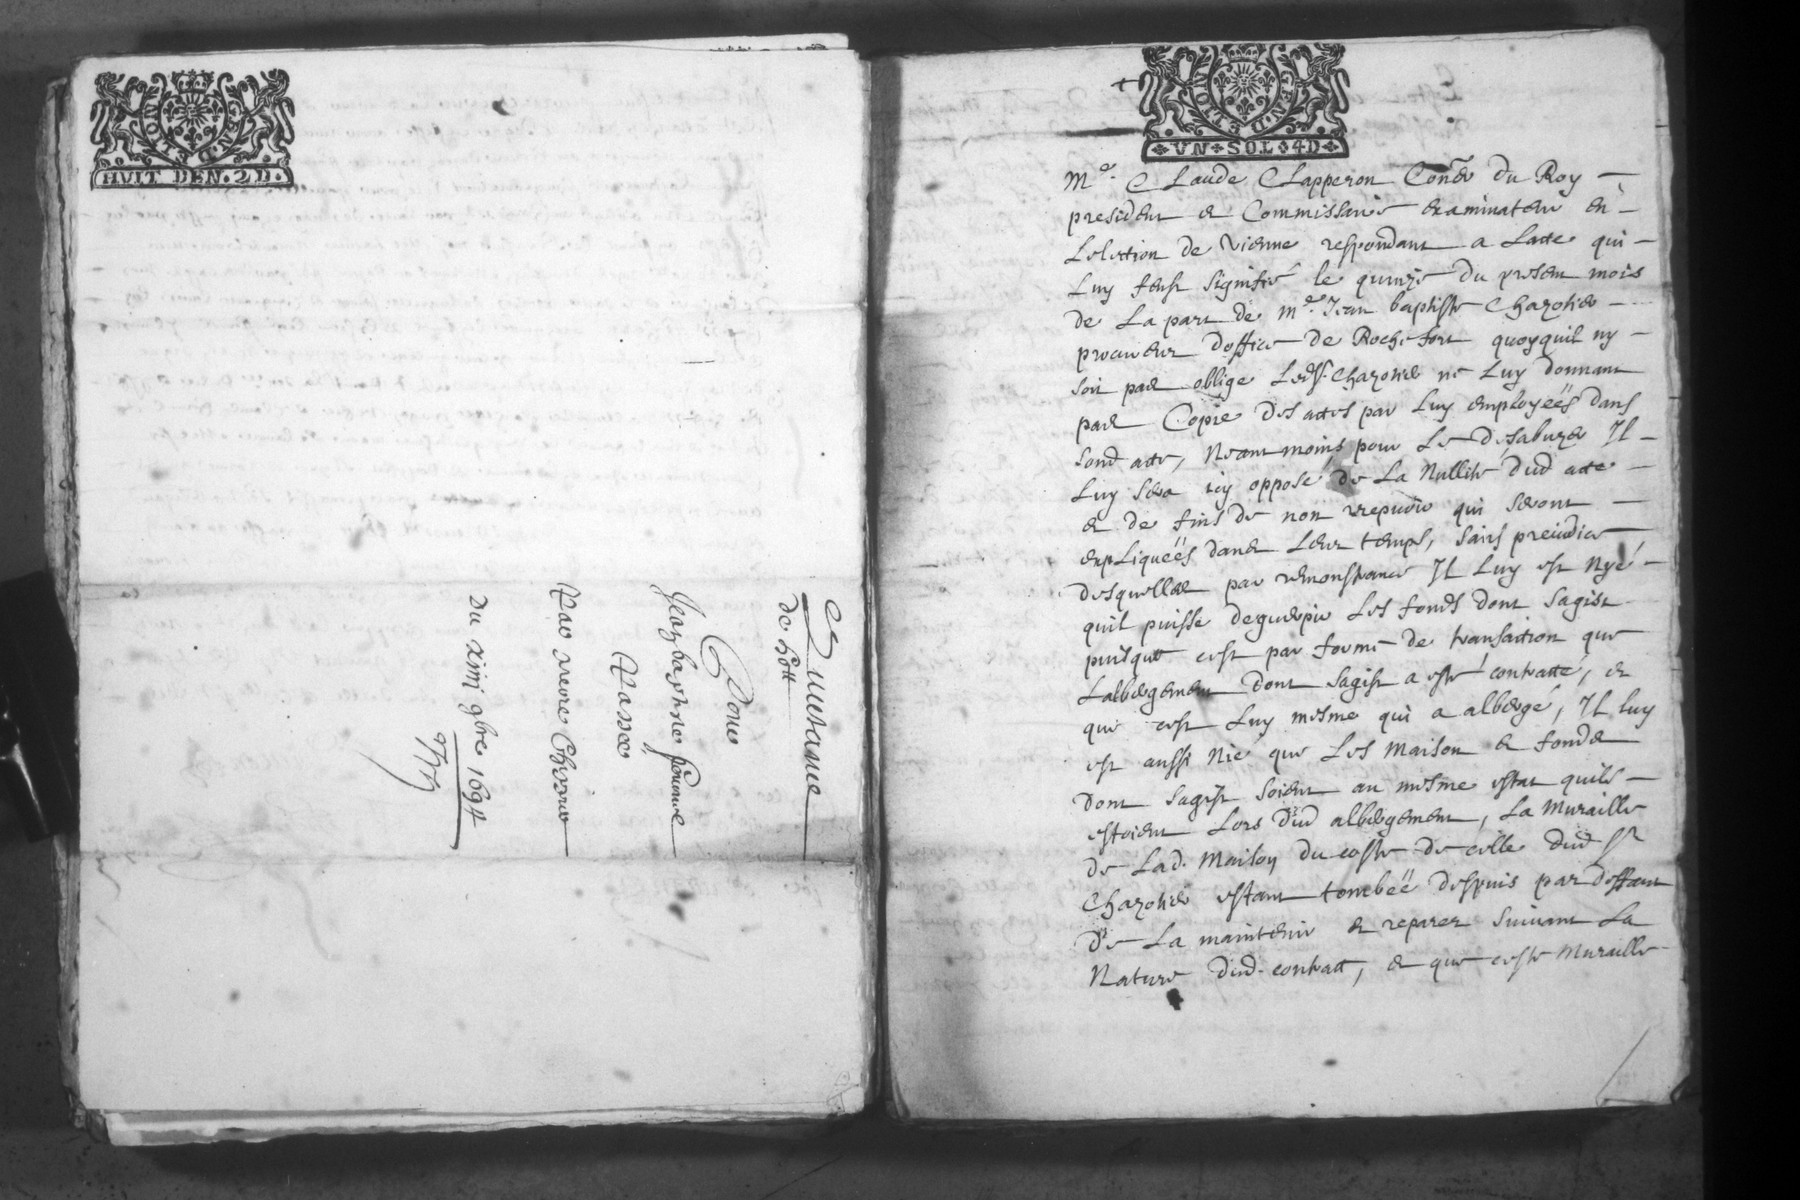 GEN. DE LION
HVIT DEN. 2 D.
Quittance
de Cott
Pour
Jean baptiste
Passée
Par
Du xiiij 9bre 1694
GEN. D. E LION
VN SOL 4D
Me. Claude Clapperon Coner du Roy
president et Commissaire examinateur en
Lelection de vienne respondant a Lacte qui
Luy feust signiffié le quinze du present mois
de La part de me. Jean baptiste Chazotier
procureur doffice de Rochefort quoyquil ny
soit pas oblige Ledsr. Chazotier ne Luy donnant
pas Copie des actes par Luy employeës dans
sond acte, Neantmoins pour Le desabuzer Il
Luy sera icy opposé de La Nullité dud acte
et de fins de non recepvoir qui seront
expliqueës dans Leur temps, sans prejudice
desquelles par remonstrance Il Luy est Nyé
quil puisse deguerpir Les fonds dont sagist
puisque cest par forme de transaction que
Lalbergement dont sagist a esté contracté, et
que cest Luy mesme qui a albergé, Il luy
est aussi Nié que Les maison et fonds
dont sagist soient au mesme estat quils
estoient Lors dud albergement, La muraille
de Lad. Maison du costé de celle dud sr
Chazotier estant tombeë despuis par deffaut
de La maintenir et reparer suivant La
Nature dud. contract, et que ceste muraille